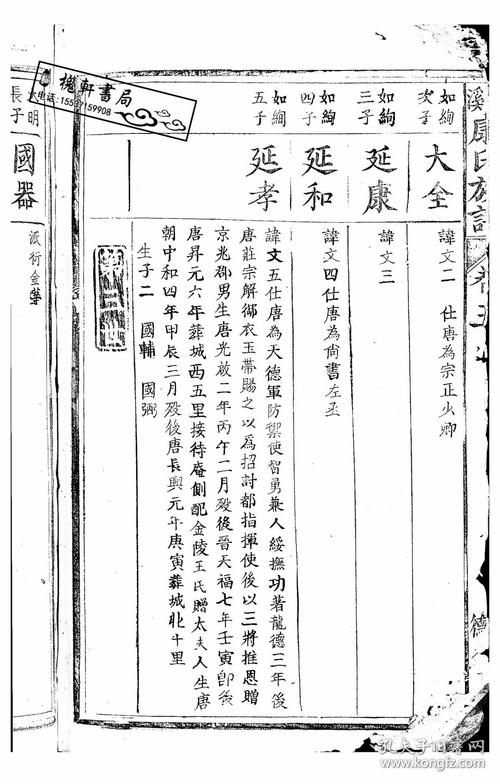 溪康氏族譜
卷五
德
如絢
次子
大全
諱文二 仕唐為宗正少卿
如絢
三子
延康
諱文三
如絢
四子
延和
諱文四仕唐為尚書左丞
如絢
五子
延孝
諱文五仕唐為天德軍防禦使智勇兼人綏撫功著龍德三年後
唐莊宗解御衣玉帶賜之以為招討都指揮使後以三將推恩贈
京兆郡男生唐光啟二年丙午二月殁後晉天福七年壬寅即後
唐昇元六年葬城西五里接待庵側配金陵王氏贈太夫人生唐
朝中和四年甲辰三月殁後唐長興元年庚寅葬城北十里
生子二 國輔 國弼
明
長子
國器
派衍金華
槐軒書局
电话:15
159908
孔夫子旧书网
www.kongfz.com